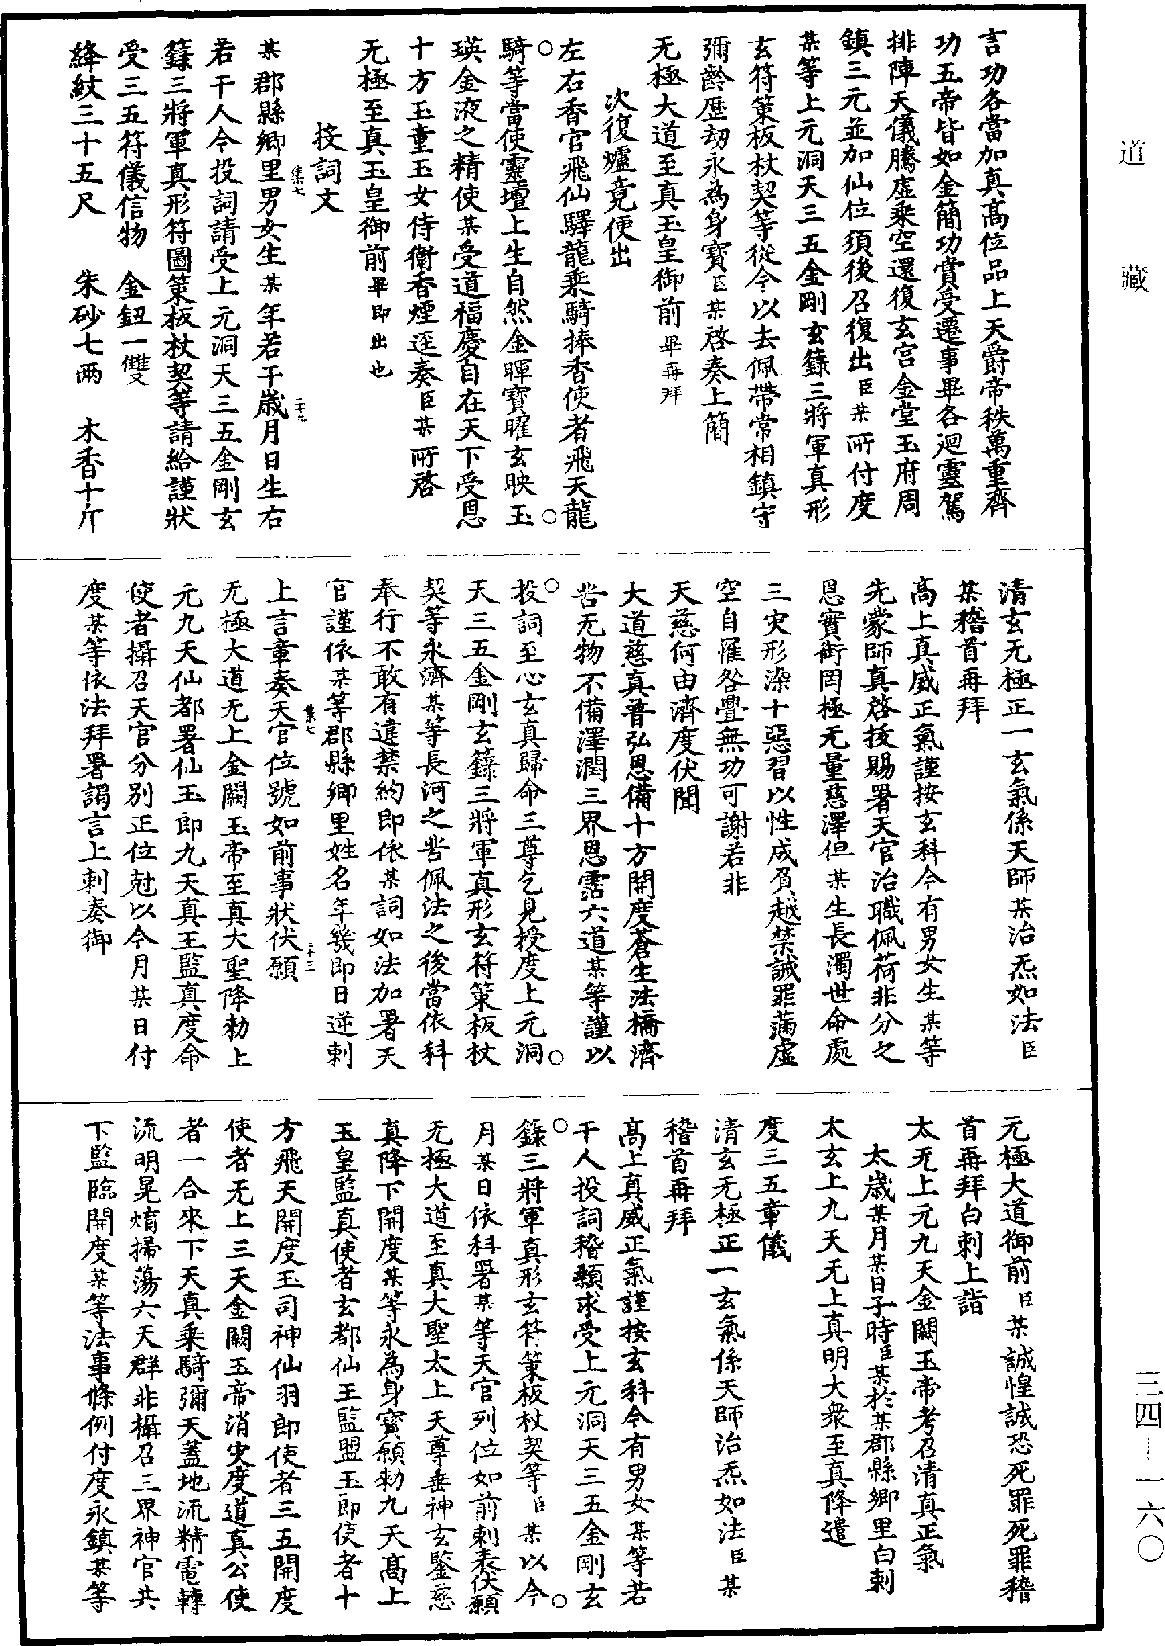 道藏
三四—一六〇
言功各當加真高位品上天爵帝秩萬重齊
功五帝皆如金簡功賞受遷事畢各迴靈駕
排陣天儀騰虛乘空還復玄宮金堂玉府周
鎮三元並加仙位須後召復出臣某所付度
某等上元洞天三五金剛玄籙三將軍真形
玄符策板杖契等從今以去佩帶常相鎮守
彌齡歷劫永為身寶臣某啓奏上簡
无極大道至真玉皇御前畢再拜
次復爐竟便出
左右香官飛仙驛龍乘騎捧香使者飛天龍
騎等當使靈壇上生自然金暉寶曜玄映玉
瑛金液之精使某受道福慶自在天下受恩
十方玉童玉女侍衛香煙逕奏臣某所啓
无極至真玉皇御前畢即出也
投詞文
某郡縣鄉里男女生某年若干歲月日生右
若干人今投詞請受上元洞天三五金剛玄
籙三將軍真形符圖策板杖契等請給謹狀
受三五符儀信物　金鈕一雙
絳紋三十五尺　朱砂七兩　木香十斤
清玄无極正一玄氣係天師某治炁如法臣
某稽首再拜
高上真威正氣謹按玄科今有男女生某等
先蒙師真啓授賜署天官治職佩荷非分之
恩實銜罔極无量慈澤但某生長濁世命處
三灾形染十惡習以性成貪越禁誡罪滿虛
空自罹咎釁無功可謝若非
天慈何由濟度伏聞
大道慈真普弘恩備十方開度蒼生法橋濟
世无物不備澤潤三界恩霑六道某等謹以
投詞至心玄真歸命三尊乞見授度上元洞
天三五金剛玄籙三將軍真形玄符策板杖
契等永濟某等長河之世佩法之後當依科
奉行不敢有違禁約即依某詞如法加署天
官謹依某等郡縣鄉里姓名年幾即日逆刺
上言章奏天官位號如前事狀伏願
无極大道无上金闕玉帝至真大聖降勑上
元九天仙都署仙玉郎九天真王監真度命
使者攝召天官分別正位尅以今月某日付
度某等依法拜署謁言上刺奏御
元極大道御前臣某誠惶誠恐死罪死罪稽
首再拜白刺上詣
太无上元九天金闕玉帝考召清真正氣
太歲某月某日子時臣某於某郡縣鄉里白刺
太玄上九天无上真明大衆至真降遣
度三五章儀
清玄无極正一玄氣係天師治炁如法臣某
稽首再拜
高上真威正氣謹按玄科今有男女某等若
干人投詞稽顙求受上元洞天三五金剛玄
籙三將軍真形玄符策板杖契等臣某以今
月某日依科署某等天官列位如前刺表伏願
无極大道至真大聖太上天尊垂神玄鑒慈
真降下開度某等永為身寶願勑九天高上
玉皇監真使者玄都仙王監盟玉郎使者十
方飛天開度玉司神仙羽郎使者三五開度
使者无上三天金闕玉帝消灾度道真公使
者一合來下天真乘騎彌天蓋地流精電轉
流明晃熠掃蕩六天群非攝召三界神官共
下監臨開度某等法事條例付度永鎮某等